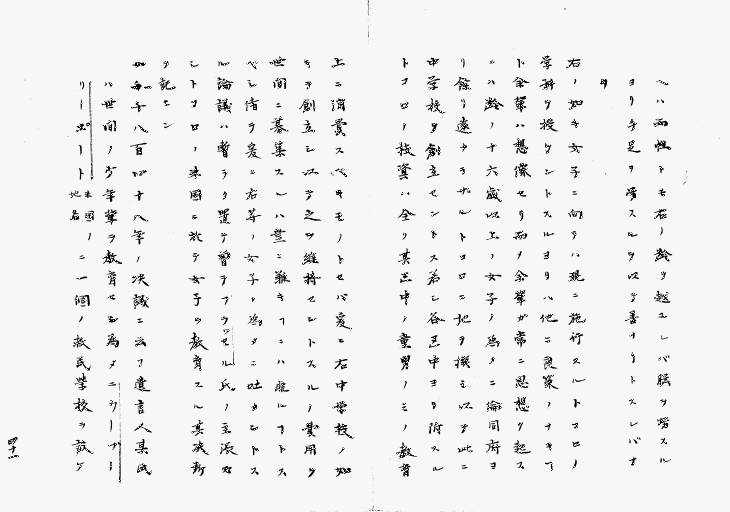 ハ両性トモ右ノ齢ヲ越エレバ脳ヲ労スル
ヨリ手足ヲ労スルヲ以テ善ナリトスレバナ
リ
右ノ如キ女子ニ向テハ現ニ施行スルトコロノ
学科ヲ授ケントスルヨリハ他ニ良策ノナキ
ト余輩ハ想像セリ而ノ余輩ガ常ニ思想ヲ起ス
ニハ齢ノ十六歳以上ノ女子ノ為メニ倫同府ヨ
リ餘リ遠カラザルトコロニ地ヲ撰ミ以テ此ニ
中学校ヲ創立セントス若シ各区中ヨリ附スル
トコロノ校資ハ全ク其区中ノ童男ノミノ教育
上ニ消費スベキモノトセバ爰ニ右中学校ノ如
キヲ創立シ以テ之ヲ維持セントスルノ費用ヲ
世間ニ募集スルハ豈ニ難キ ニハ非ルナトス
ベシ倩ラ爰ニ右等ノ女子ノ為メニ吐カントス
ル論議ハ暫ラク置テ嘗テブラッセル氏ノ主張
シトコロノ米国ニ於テ女子ヲ教育スル其
ヲ記セン
千八百四十八年ノ決議ニ云フ遺言人某氏
ハ世間ノ少年輩ヲ教育セル為メニシーブー
リーポート米国地名ノニ一個ノ救民学校ヲ設ケ
四十一